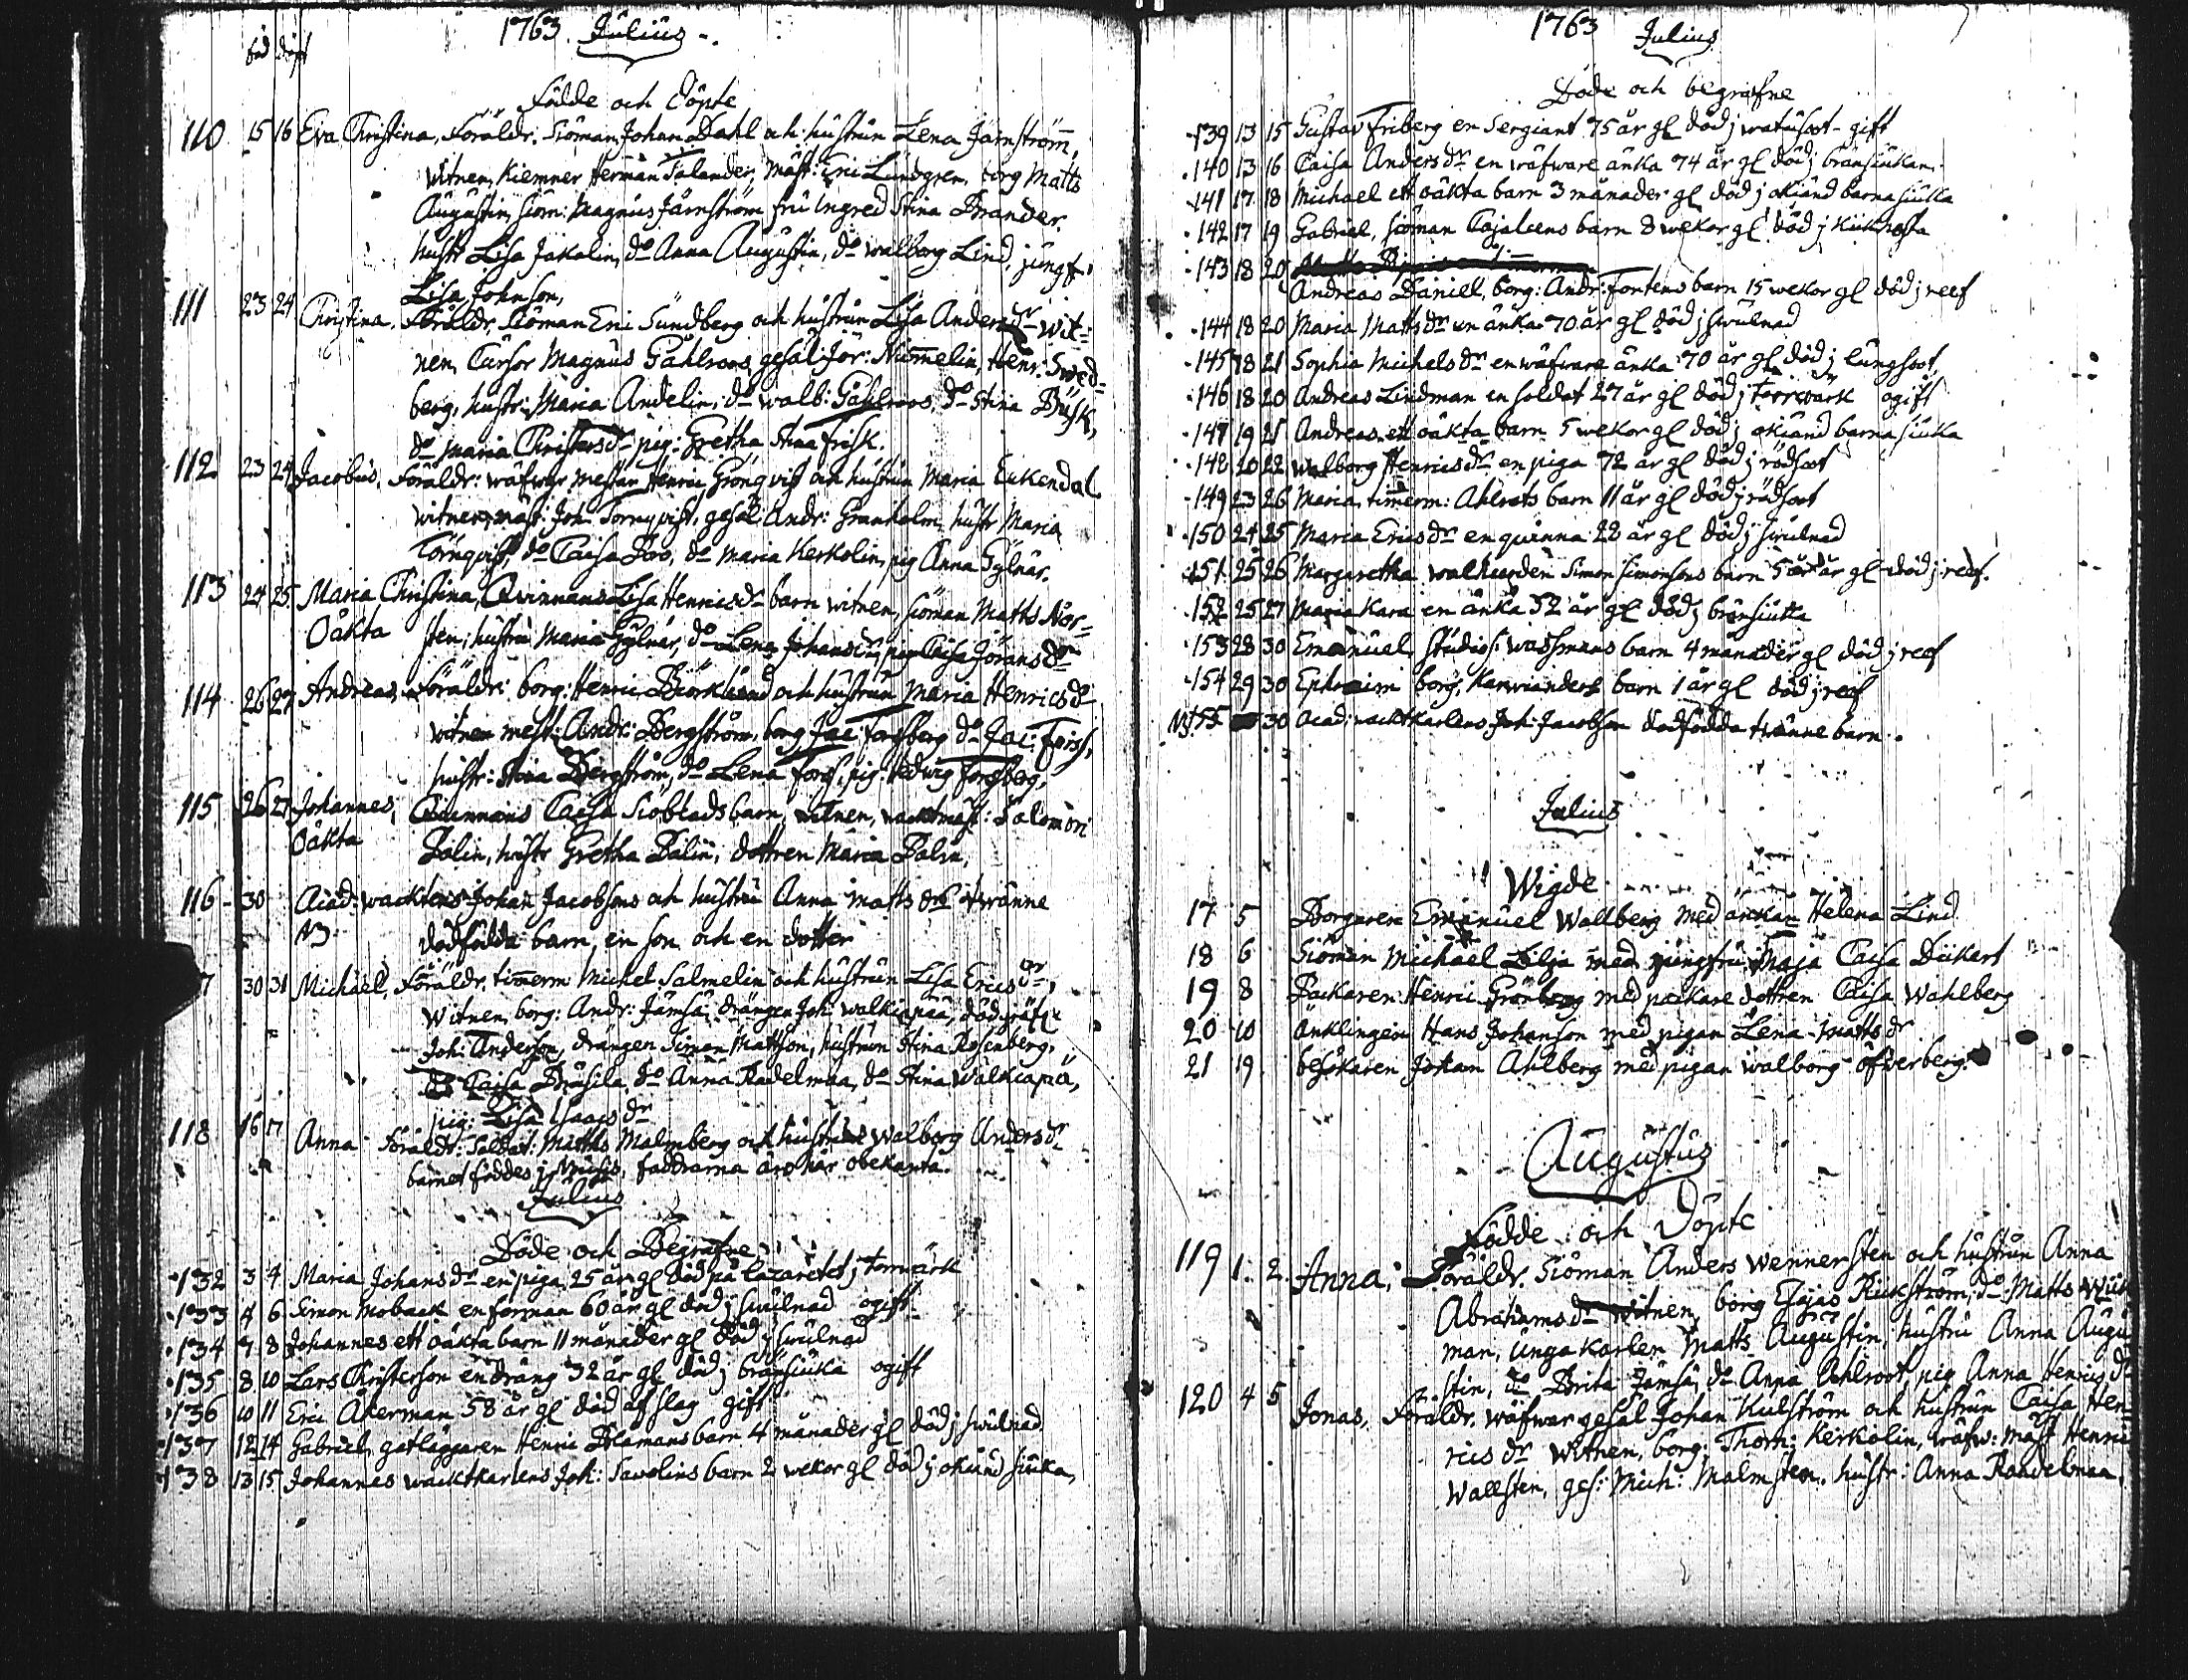 1763. Julius.
född döpt
Födde och Döpte
110 15 16 Eva Christina, Föräldr. Siöman Johan Dahl och hustrun Lena Järnström,
witnen, Kiemner Herman Talander, mäst: Eric Lundgren, borg Matts
Augustin, siöm: Magnus Järnström, fru Ingred Stina Brander,
hustr Lisa Jakolin, do Anna Augustin, do walborg Lind, jungf.
Lisa Johnson,
111 23 24 Christina, Föräldr. Siöman Eric Sundberg och hustrun Lisa Anders dr wit=
nen, Cursor Magnus Gåhlroos, gesäl Jör: Nummelin, Henr: Swed=
berg, hustr: Maria Andelin, do walb: Gåhlroos, do Stina Busk,
do Maria Christers dr pig: Gretha Stina Frisk.
112 23 24 Jacobus, Föräldr: wäfwar mestar Henric Grönqvist och hustrun Maria Enkendal
witnen, mäst: Joh. Tornqvist, gesäl: Andr: Granholm, hustr Maria
Törnqvist, do Caisa Boo, do Maria Kerkolin, pig Anna Gylnär.
113 24 25 Maria Christina, Qvinnans Lisa Henrics dr barn witnen, siöman Matts Nor=
Oäkta sten, hustru Maria Gylnär, do Lena Johans dr, pig Caisa Jörans dr
114 26 27 Andreas, Föräldr: borg: Henric Biörklund och hustrun Maria Henrics dr
witnen mest: Andr: Bergström, borg Jac Forsberg do Jac: Friss,
hustr: Stina Bergström, do Lena Forss, pig: Hedwig Forsberg,
115 26 27 Johannes, Qvinnans Caisa Siöblads barn, witnen, wacktmäst: Salomon
Oäkta Palin, hustr Gretha Palin, dottren Maria Palin,
116 30 Acad: wacktens Johan Jacobsons och hustru Anna Matts drs twänne
NB dödfödda barn, en son och en dotter
7 30 31 Michäel, Föräldr. timerm Michel Salmelin och hustrun Lisa Erics dr,
witnen, borg: Andr: Jämsä, drängen Joh: walkiapää, dödgräf:
Joh: Anderson, drängen Simon Mattson, hustrun Stina Rosenberg,
do Caisa Brusila, do Anna Radelmaa, do Stina Walkiapä,
pig: Lisa Isaacs dr
118 16 17 Anna Föräldr: Soldat: Matths Malmberg och hustrun Walborg Anders dr
barnet föddes j , faddrarna äro här obekanta.
Julius
Döde och Begrafne
132 3 4 Maria Johans dr en piga 25 år gl död på lazaretet j torrwärk
133 4 6 Simon Moback en forman 60 år gl död j swulnad ogift
134 7 8 Johannes ett oäkta barn 11 månader gl död j swulnad
135 8 10 Lars Christerson en dräng 32 år gl död j bränsiuka ogift
136 10 11 Eric Åkerman 58 år gl död af slag gift
137 12 14 Gabriel, gatläggaren Henric Blåmans barn 4 månader gl död j swulnad
138 13 15 Johannes wacktkarlens Joh: Savolins barn 2 wekor gl död j okiänd siuka,
1763 Julius
Döde och begrafne
139 13 15 Gustav Friberg en Sergiant 75 år gl död j watusoot - gift
140 13 16 Caisa Anders dr en wäfware änka 74 år gl död j bränsiukan.
141 17 18 Michael ett oäkta barn 3 månader gl död j okiänd barnasiuka
142 17 19 Gabriel, siöman Cajaleens barn 8 wekor gl död j kiikhosta
143 18 20
Andreas Daniel, borg: Andr: Fontens barn 15 wekor gl död j reef
144 18 20 Maria Matts dr en änka 70 år gl död j swulnad
145 18 21 Sophia Michels dr en wäfware änka 70 år gl död j lungsoot
146 18 20 Andreas Lindman en soldat 27 år gl död j torrwärk ogift
147 19 21 Andreas ett oäkta barn 5 wekor gl död j okiänd barnasiuka
148 20 22 Walborg Henrics dr en piga 72 år gl död j rödsoot
149 23 26 Maria, timerm: Ahlrots barn 11 år gl död j rödsoot
150 24 25 Maria Erics dr en quinna 22 år gl död j swulnad
151 25 26 Margaretha walkurden Simon Simonsons barn 5 år gl död j reef.
152 25 27 Maria Kara en änka 52 år gl död j bränsiuka
153 28 30 Emanuel, studios: wassmans barn 4 månader gl död j reef
154 29 30 Ephraim borg. Karwianders barn 1 år gl död j reef
NB 155 30 Acad: wacktkarlens Joh: Jacobson dödfödda twänne barn.
Julius
Wigde
17 5 Borgaren Emanuel Wallberg med änkan Helena Lind
18 6 Siöman Michäel Lilja med jungfru Maja Caisa Dükert
19 8 Packaren Henric Grönberg med packare dottren Caisa Wahlberg
20 10 änklingen Hans Johanson med pigan Lena Matts dr
21 19 besökaren Johan Ahlberg med pigan walborg öfwerberg.
Augustus
Födde och Döpte
119 1. 2. Anna, Föräldr. Siöman Anders Wennersten och hustrun Anna
Abrahams dr witnen, borg Esajas Rickström, do Matts Wiik
man, unga karlen Matts Augustin, hustru Anna Augu
stin, do Brita Jämsä, do Anna Ahlroot, pig Anna Henrics dr
120 4 5 Jonas, Föräldr. wäfwar gesäl Johan Kulström och hustrun Caisa Hen
rics dr witnen, borg: Thom: Kerkolin, wäfw: mäst Henric
Wallsten, ges: Mich: Malmsten, hustr: Anna Raadelmaa,